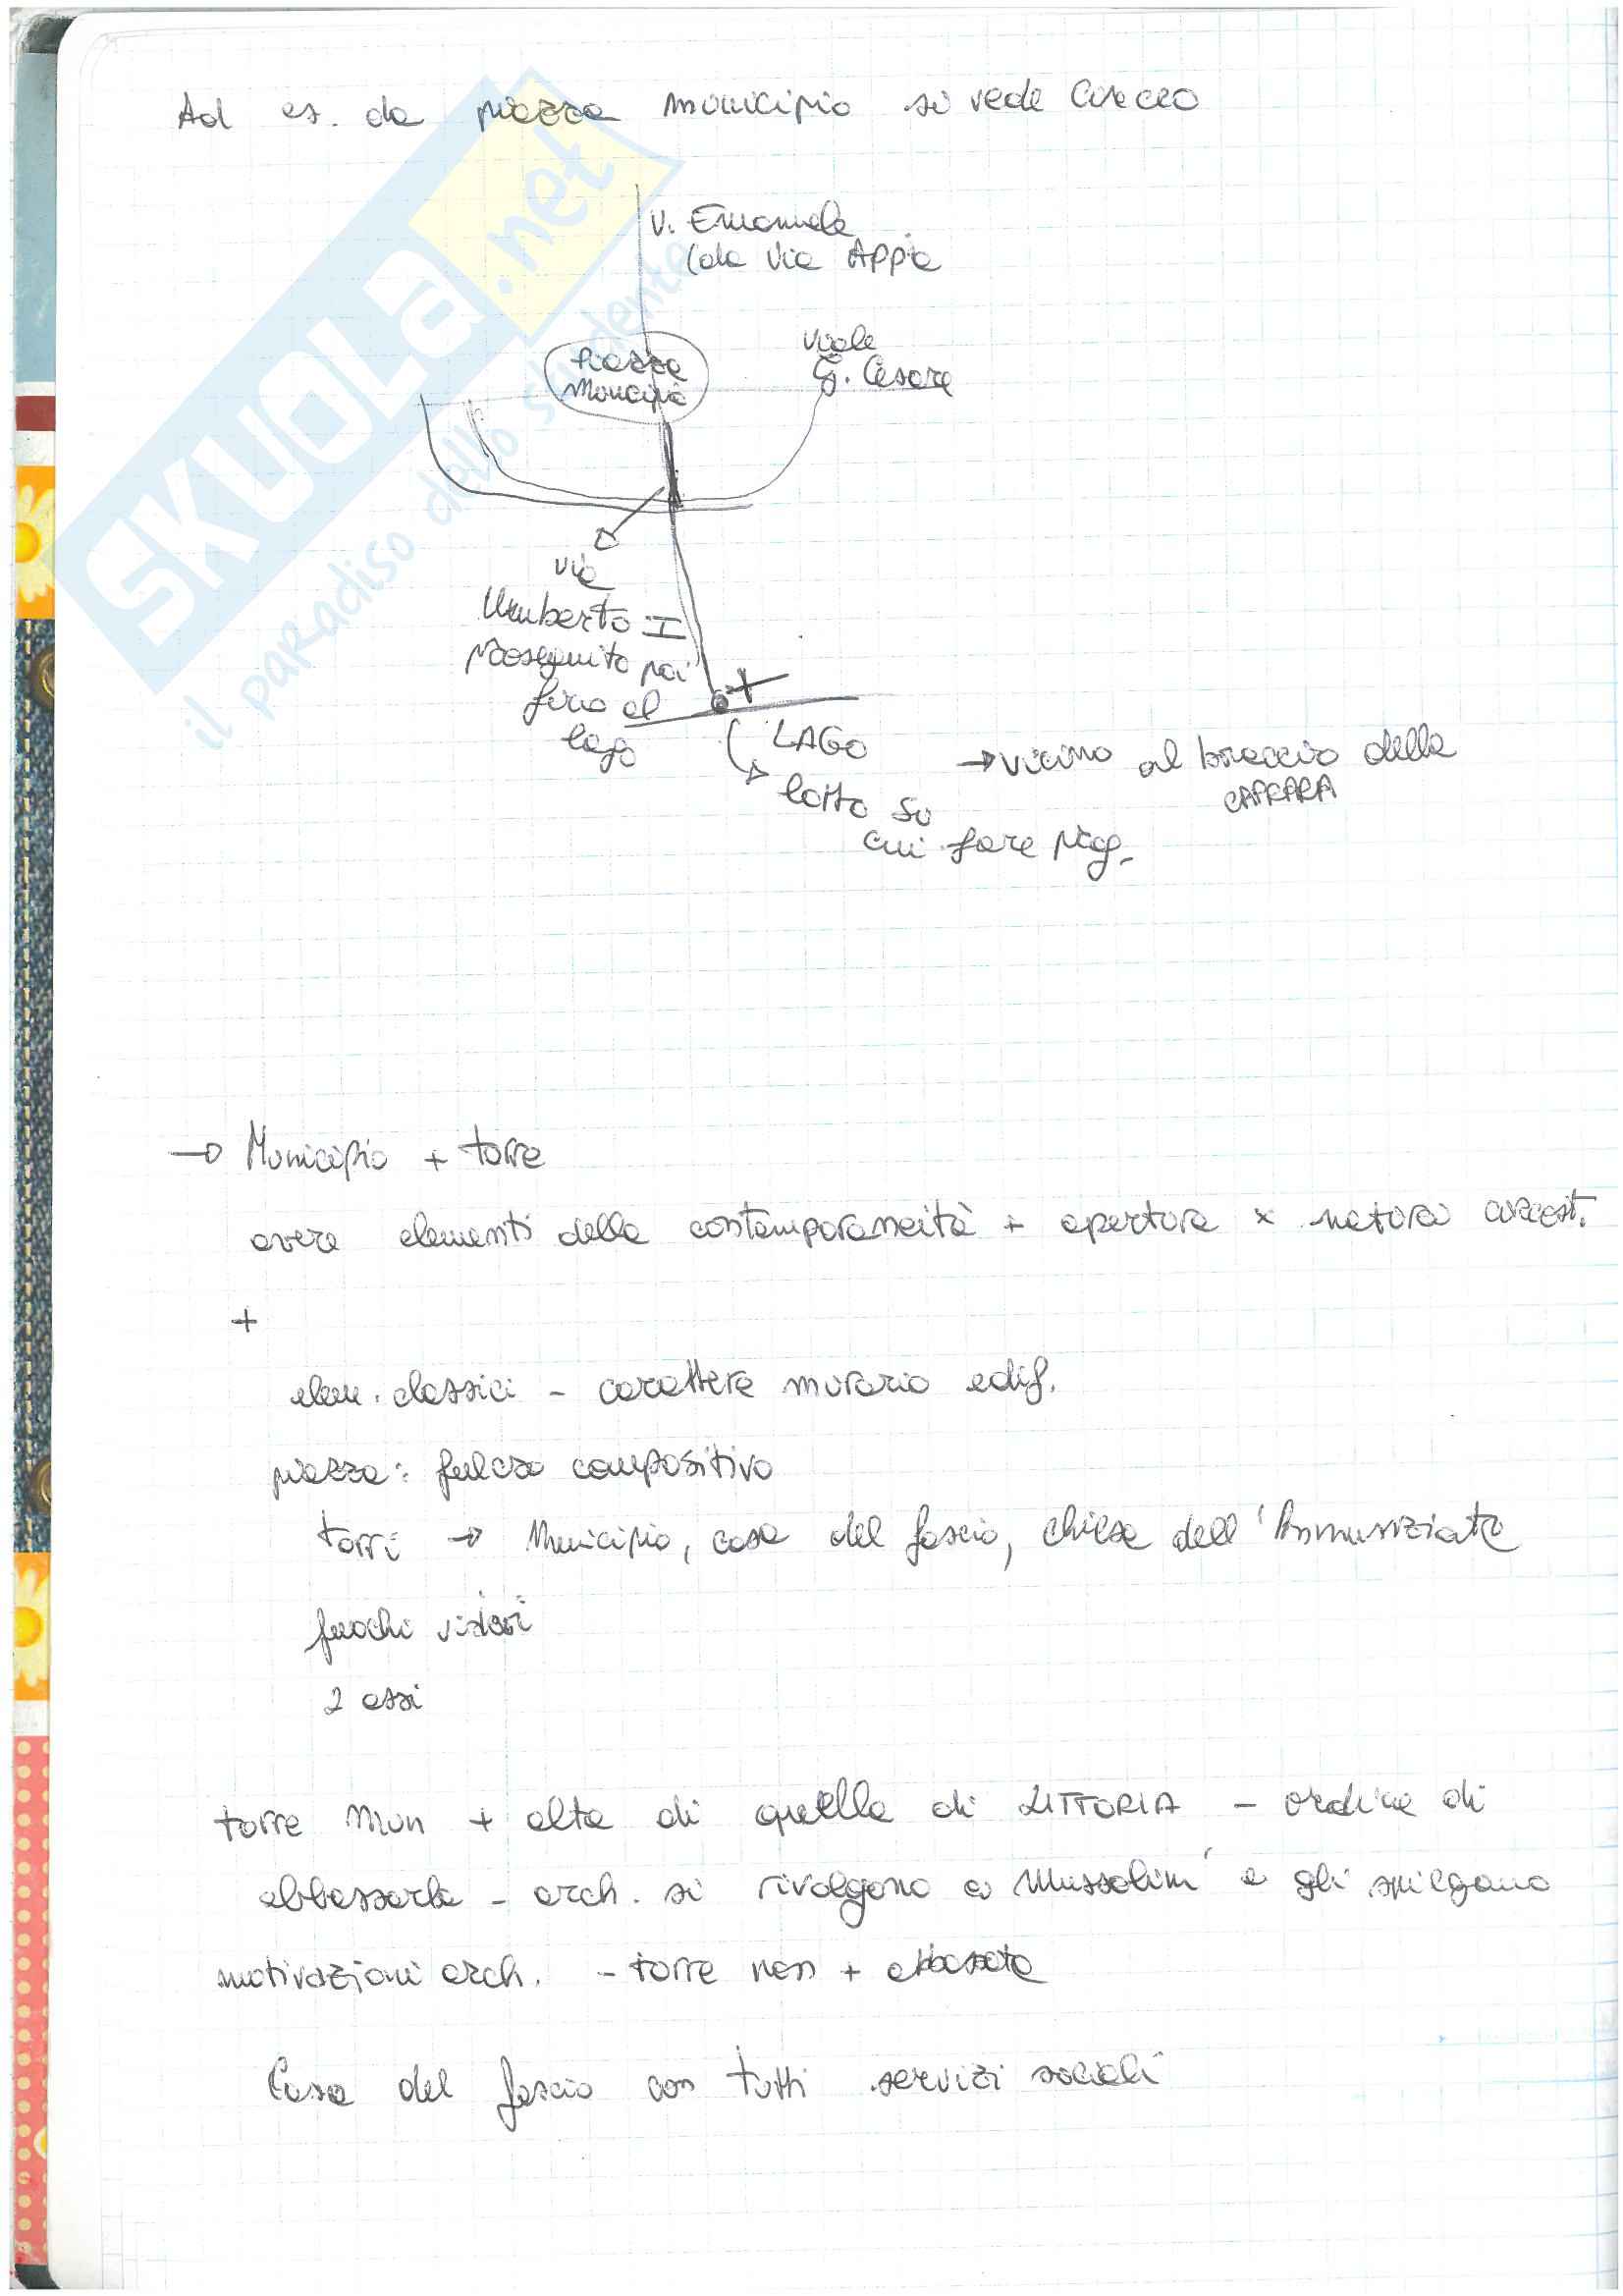 Ad es. da piazza municipio si vede Circeo
V. Emanuele
(da Via Appia
viale
G. Cesare
Piazza
Municipio
via
Umberto I
proseguito poi
fino al
lago
LAGO
lotto su
cui fare prog.
→ vicino al braccio della
CAPRARA
→ Municipio + torre
avere elementi della contemporaneità + apertura x natura circost.
+
elem. classici - carattere murario edif.
piazza: fulcro compositivo
torri → Municipio, casa del fascio, chiesa dell'Annunziata
fuochi visivi
2 assi
torre Mun + alta di quella di LITTORIA - ordine di
abbassarla - arch. si rivolgono a Mussolini e gli spiegano
motivazioni arch. - torre non + abbassata
Casa del fascio con tutti servizi sociali
SKUOLA.net
il paradiso dello studente